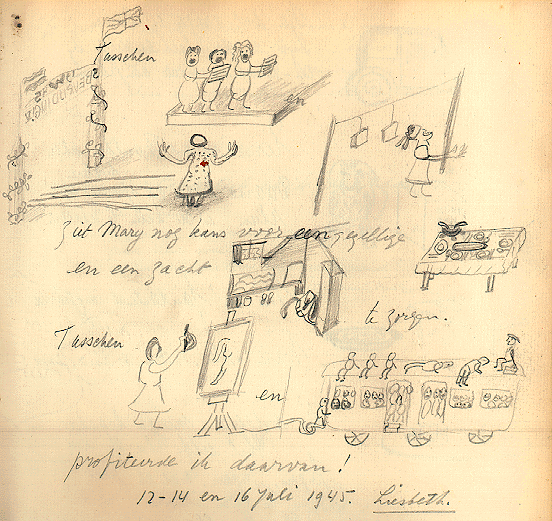 Tusschen
BEVRIJDING
en
ziet Mary nog kans voor een gezellige
en een zacht
te zorgen.
Tusschen
en
profiteerde ik daarvan!
12-14 en 16 Juli 1945. Liesbeth.